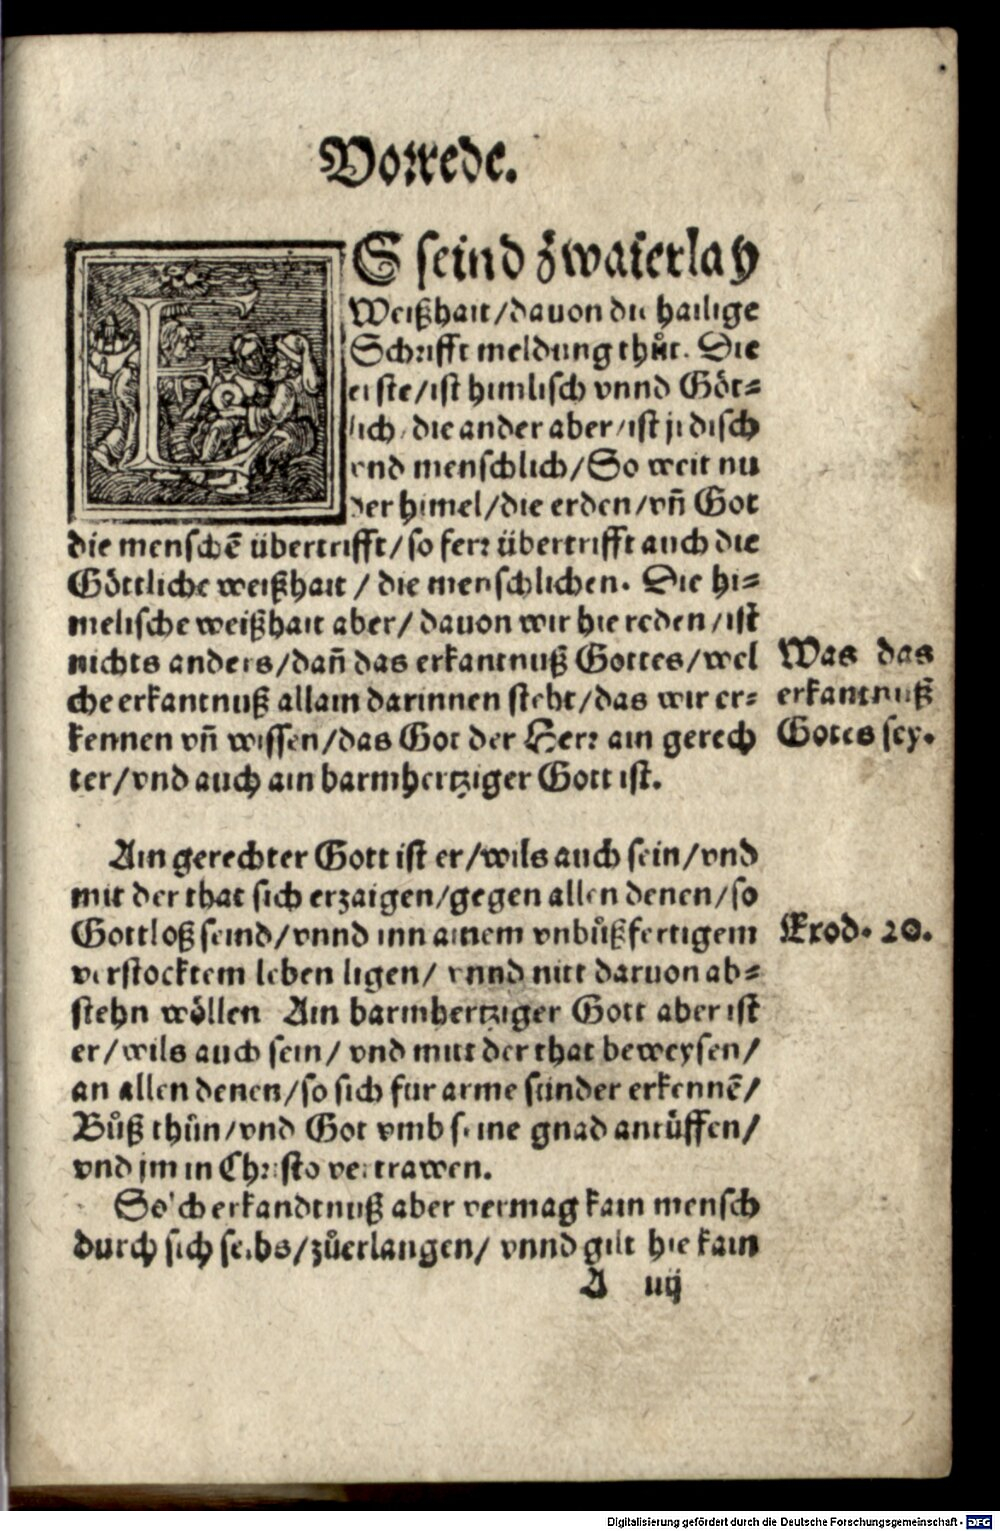 Vorrede.
ES seind zwaierlay
Weißhait/dauon die hailige
Schrifft meldung thůt. Die
erste/ist himlisch vnnd Göt-
lich/die ander aber/ist jrdisch
vnd menschlich/So weit nu
der himel/die erden/vñ Got
die menschẽ übertrifft/so ferr übertrifft auch die
Göttliche weißhait / die menschlichen. Die hi-
melische weißhait aber/ dauon wir hie reden/ist
nichts anders/dañ das erkantnuß Gottes/wel
che erkantnuß allain darinnen steht/das wir er-
kennen vñ wissen/das Got der Herr ain gerech
ter/vnd auch ain barmhertziger Gott ist.
Was das
erkantnuß
Gotes sey.
Ain gerechter Gott ist er/wils auch sein/vnd
mit der that sich erzaigen/gegen allen denen/so
Gottloß seind/vnnd inn ainem vnbůßfertigem
verstocktem leben ligen/ vnnd nitt daruon ab-
stehn wöllen Ain barmhertziger Gott aber ist
er/wils auch sein/ vnd mitt der that beweysen/
an allen denen/so sich für arme sünder erkennẽ/
Bůß thůn/vnd Got vmb seine gnad anrůffen/
vnd jm in Christo vertrawen.
Exod. 20.
Solch erkandtnuß aber vermag kain mensch
durch sich selbs/zůerlangen/ vnnd gilt hie kain
A iiij
Digitalisierung gefördert durch die Deutsche Forschungsgemeinschaft - DFG